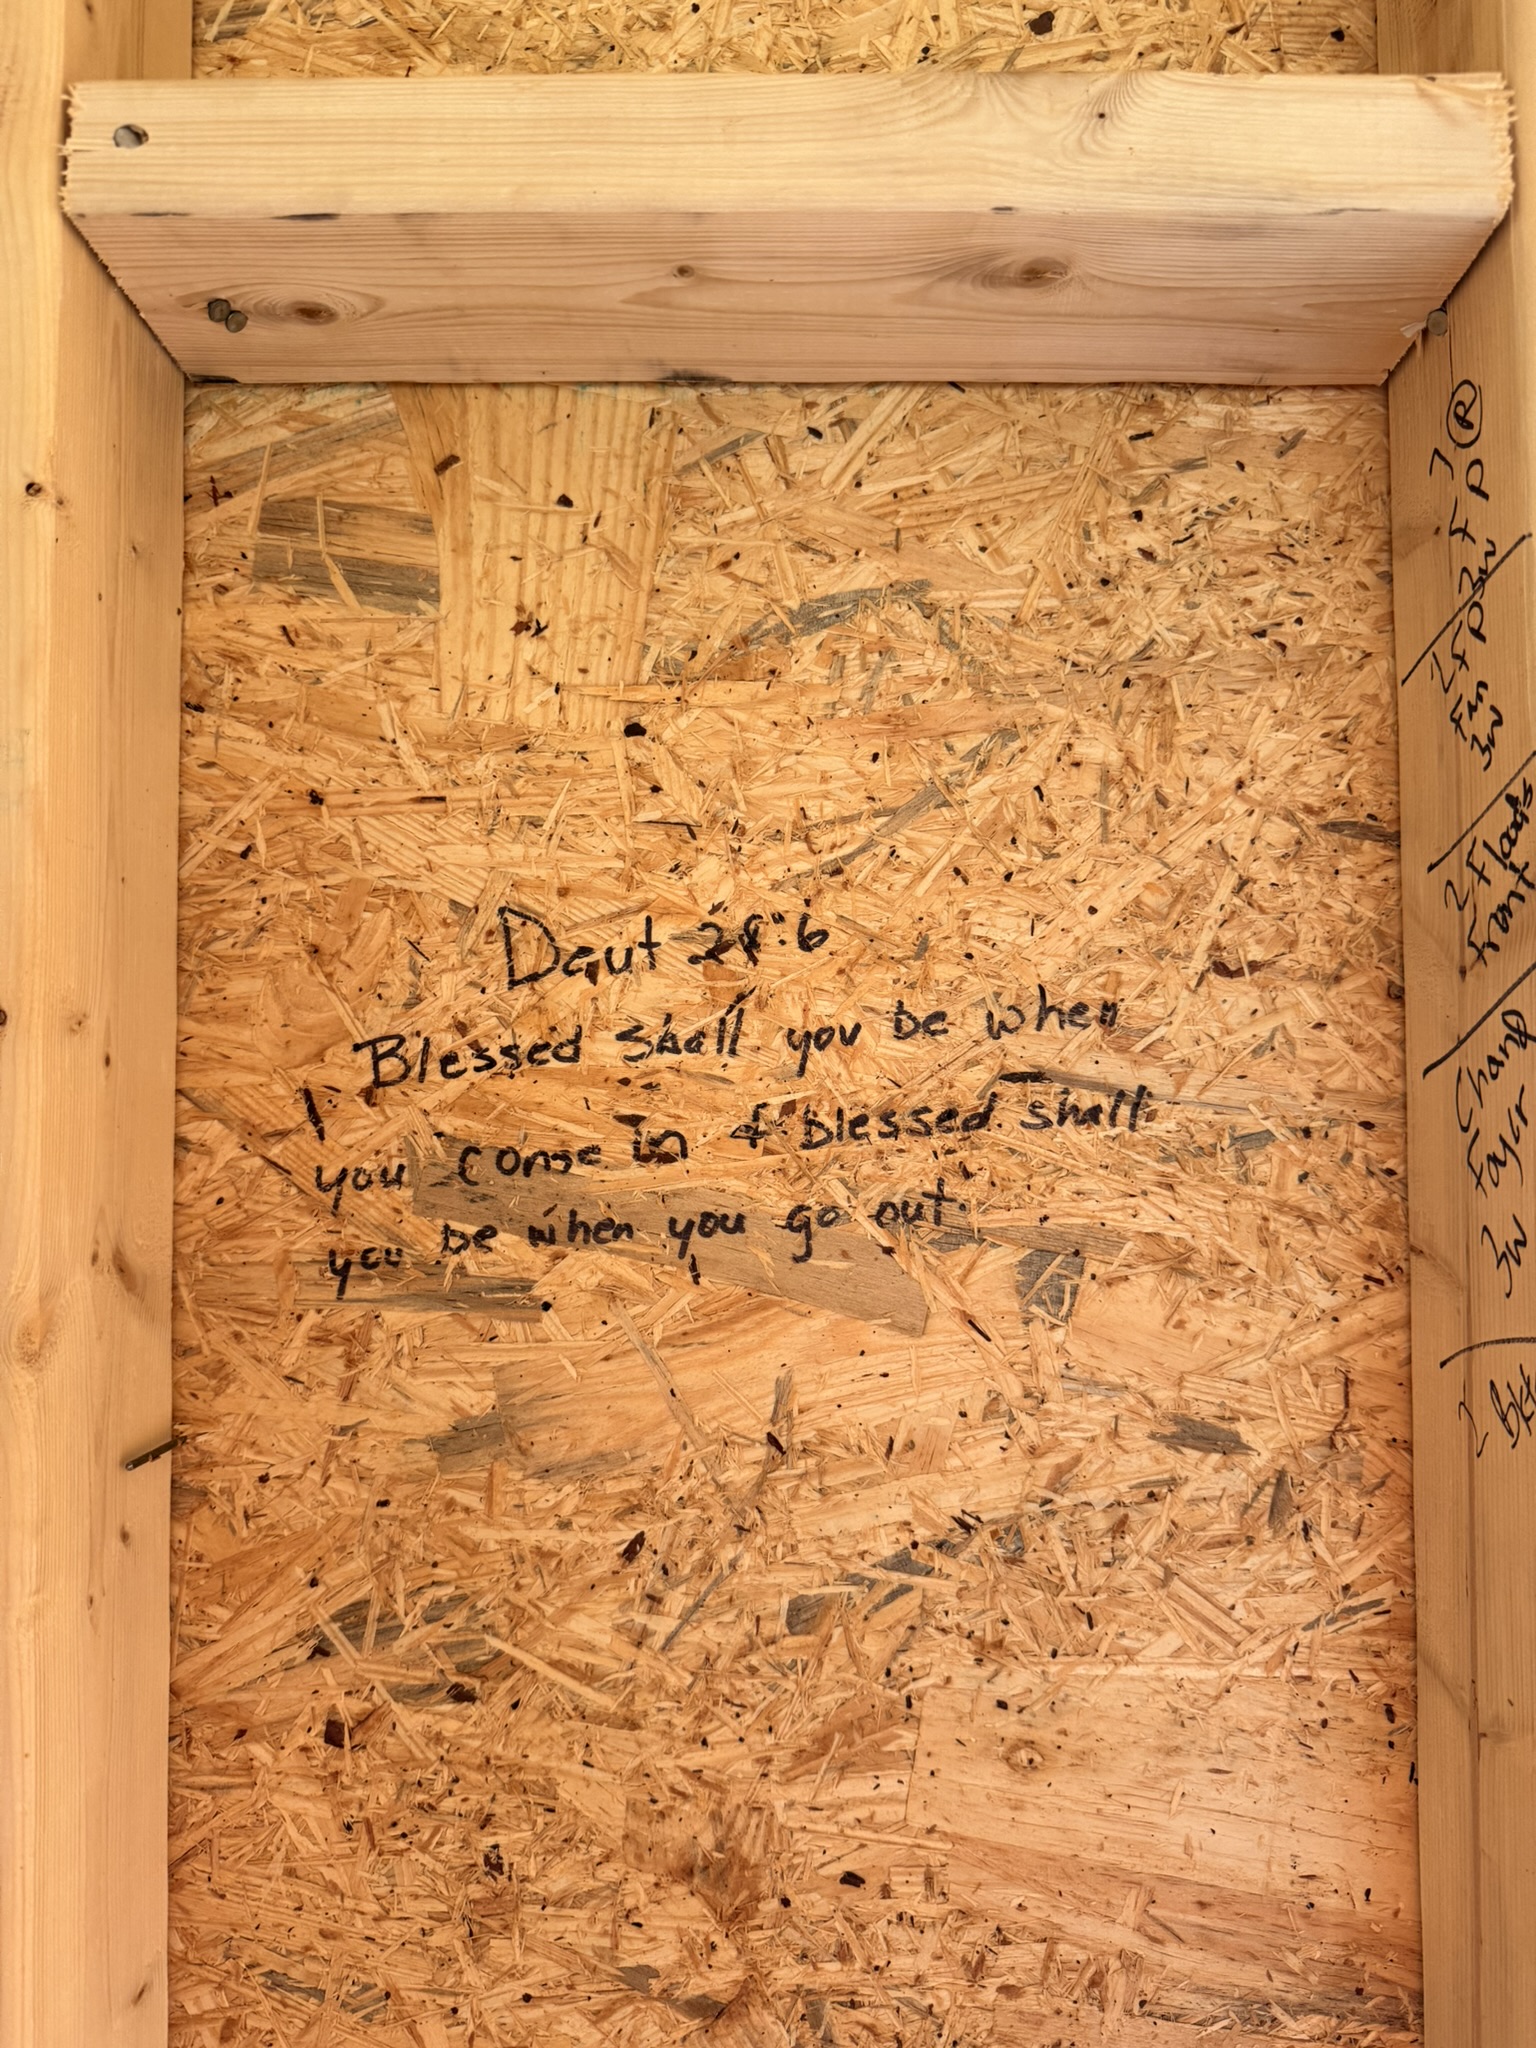 Deut 28:6
Blessed shall you be when
you come in & blessed shall
you be when you go out.
R
2 Floods
Front
Chand
Foyer
3w